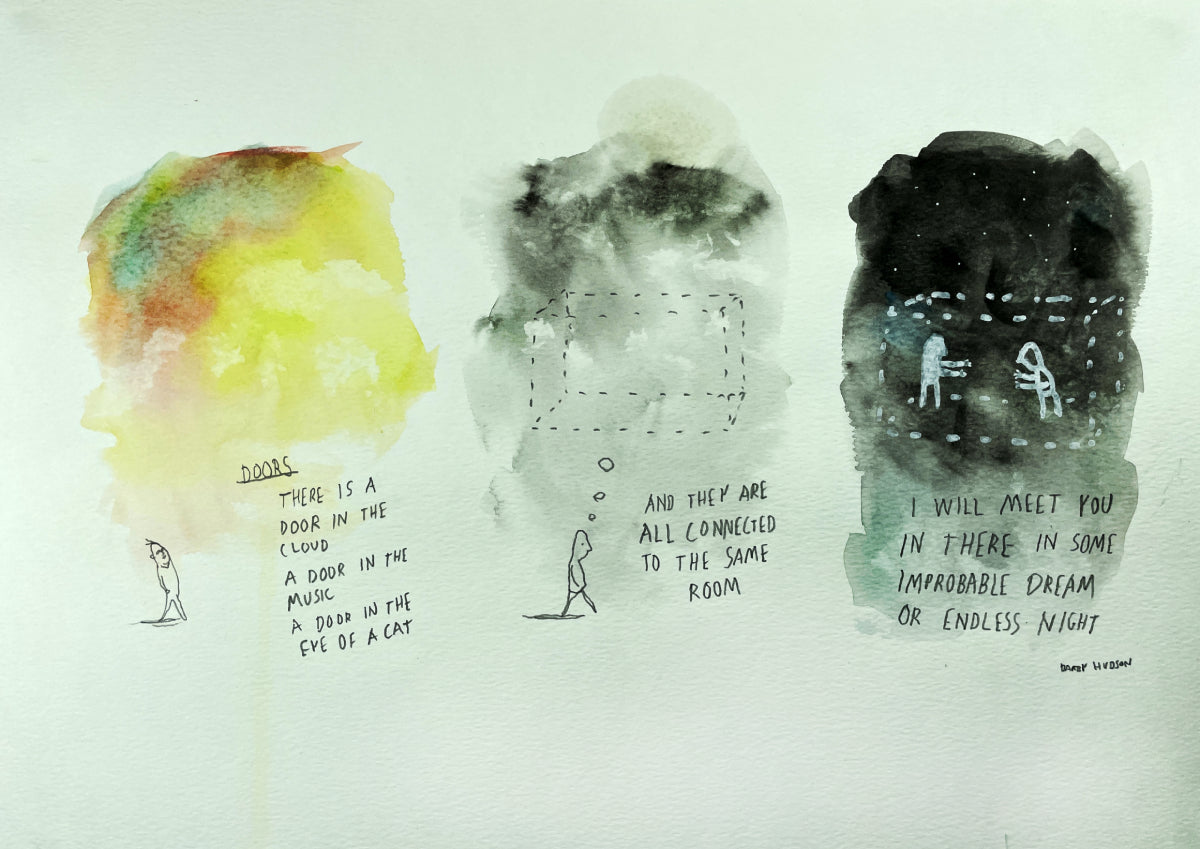 DOORS
THERE IS A
DOOR IN THE
CLOUD
A DOOR IN THE
MUSIC
A DOOR IN THE
EYE OF A CAT
AND THEY ARE
ALL CONNECTED
TO THE SAME
ROOM
I WILL MEET YOU
IN THERE IN SOME
IMPROBABLE DREAM
OR ENDLESS NIGHT
DARBY HUDSON